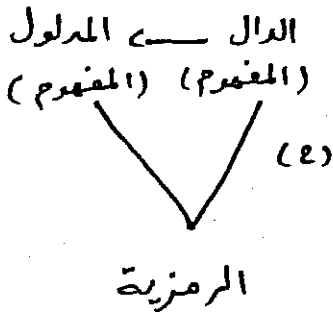 الدال ← المدلول
(المفهوم) (المفهوم)
(2)
الرمزية